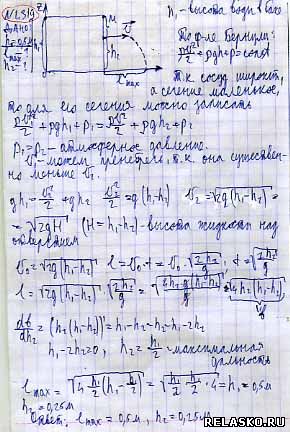 №2.319
Дано
h₁=0,5м
l max-?
h₂-?
z
h₁
M
v
h₂
l max
h₁ - высота воды в сосуде
По ф-ле Бернули:
ρv²/2 + ρgh + p = const
Т.к. сосуд широкий,
а сечение маленькое,
то для его сечения можно записать
ρv₁²/2 + ρgh₁ + p₁ = ρv₂²/2 + ρgh₂ + p₂
p₁ = p₂ - атмосферное давление.
v₁ - можем пренебречь, т.к. она существен-
но меньше v₂.
gh₁ = v₂²/2 + gh₂ v₂²/2 = g(h₁-h₂) v₂ = √2g(h₁-h₂) =
= √2gH (H = h₁-h₂) - высота жидкости над
отверстием
v₀ = √2g(h₁-h₂) l = v₀·t = v₀·√2h₂/g, t = √2h₂/g
l = √2g(h₁-h₂) · √2h₂/g = √4h₂g(h₁-h₂)/g = √4h₂(h₁-h₂)
db/dh₂ = (h₂(h₁-h₂))' = h₁-h₂-h₂ = h₁-2h₂
h₁-2h₂=0, h₂ = h₁/2 - максимальная
дальность
l max = √4 h₁/2 (h₁ - h₁/2) = √h₁/2 · h₁/2 · 4 = h₁ = 0,5м
h₂ = 0,25м
Ответ: l max = 0,5м, h₂ = 0,25м
RELASKO.RU